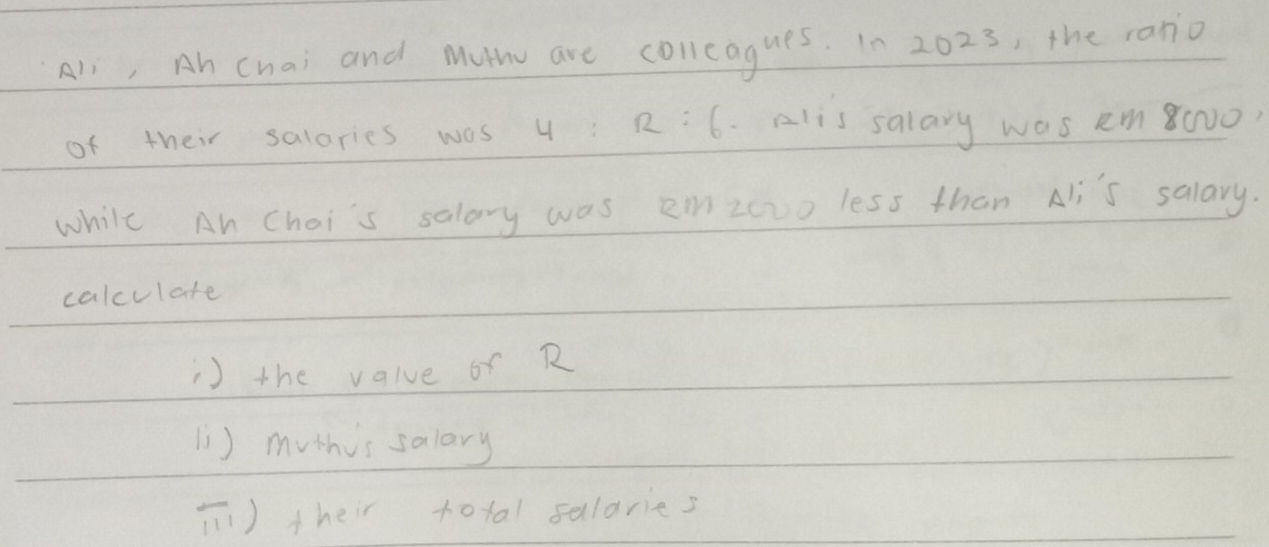 Ali, Ah Chai and Muthu are colleagues. In 2023, the ratio
of their salaries was 4 : R : 6. Ali's salary was RM 8000,
while Ah Chai's salary was RM 2000 less than Ali's salary.
calculate
i) the value of R
ii) Muthu's salary
iii) their total salaries